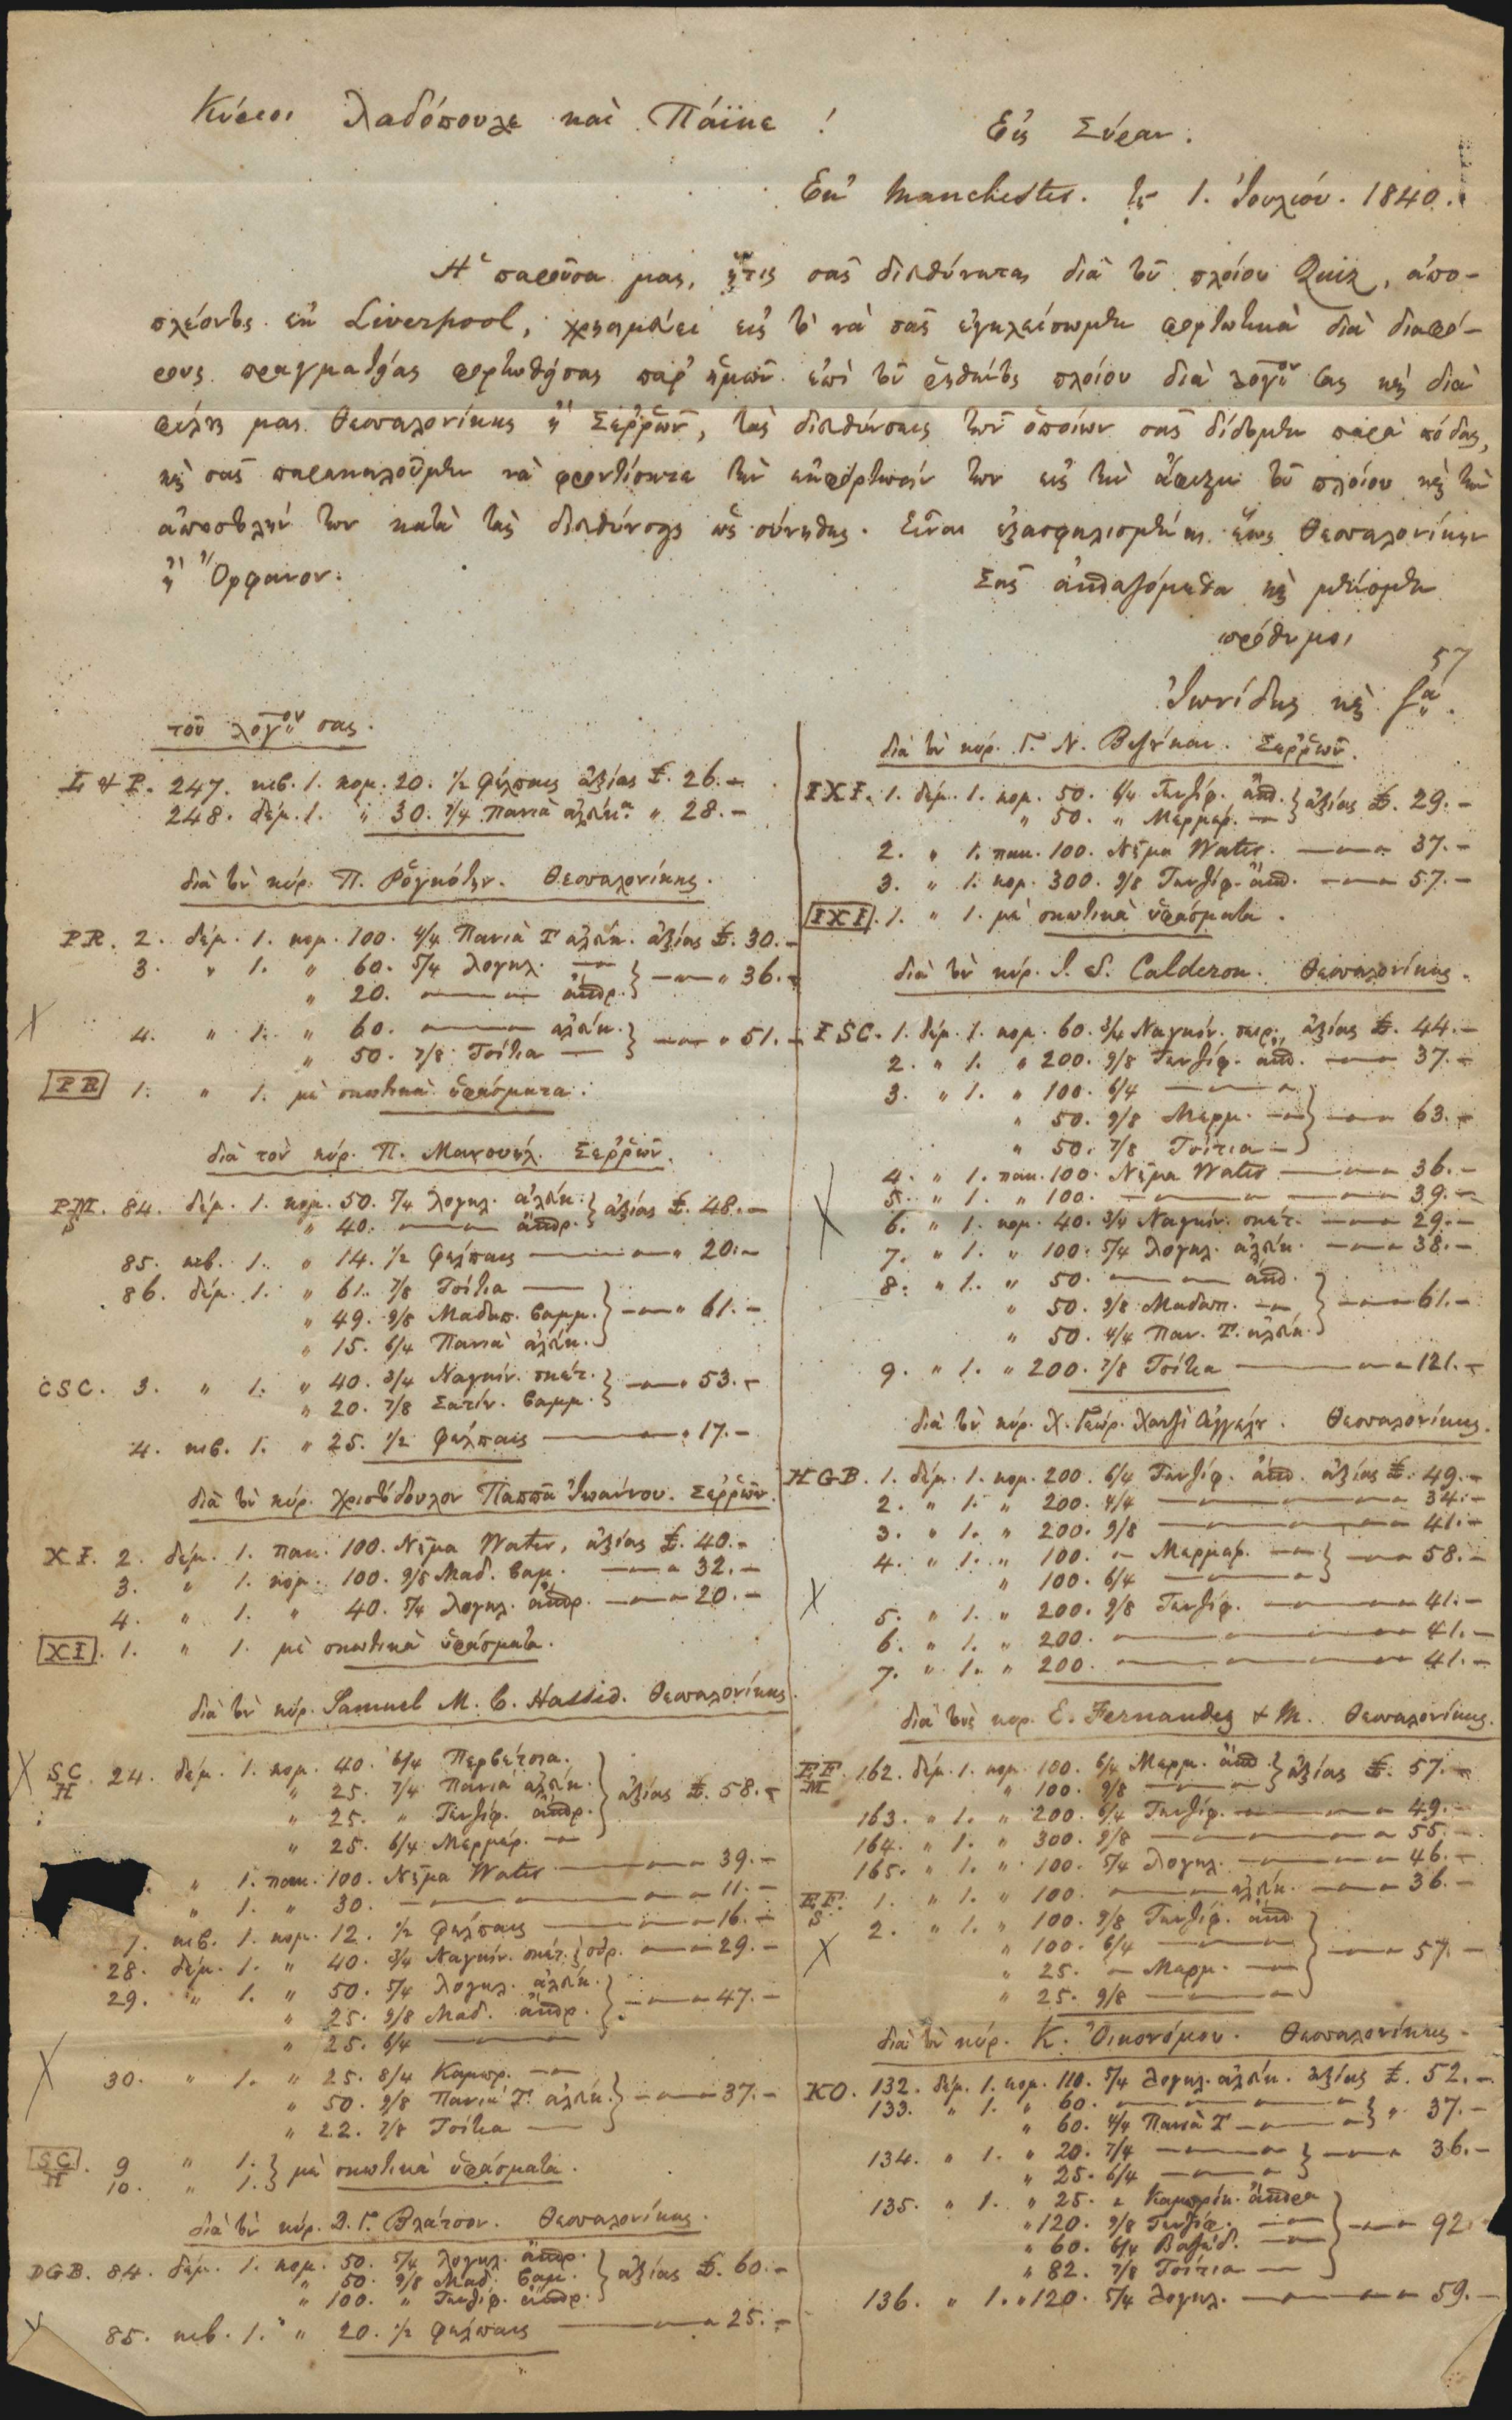 Κύριοι Λαδόπουλε καὶ Πάϊκε !
Εἰς Σύραν.
Ἐκ Manchester. τῇ 1. Ἰουλίου. 1840.
Ἡ παροῦσα μας, ἥτις σᾶς διευθύνεται διὰ τοῦ πλοίου Quiz, ἀπο-
πλέοντος ἐκ Liverpool, χρησιμεύει εἰς τὸ νὰ σᾶς ἐγκλείσωμεν φορτωτικὰ διὰ διαφό-
ρους πραγματείας φορτωθείσας παρ' ἡμῶν ἐπὶ τοῦ ῥηθέντος πλοίου διὰ λογ/ον σας καὶ διὰ
φίλους μας Θεσσαλονίκης ἢ Σεῤῥῶν, τὰς διευθύνσεις τῶν ὁποίων σᾶς δίδομεν παρὰ πόδας,
καὶ σᾶς παρακαλοῦμεν νὰ φροντίσητε τὴν ἐκφόρτωσίν των εἰς τὴν ἄφιξιν τοῦ πλοίου καὶ τὴν
ἀποστολήν των κατὰ τὰς διευθύνσεις ὡς σύνηθες. Εἶναι ἐξασφαλισμέναι ἕως Θεσσαλονίκην
ἢ Ὀρφανον.
Σᾶς ἀσπαζόμεθα καὶ μένομεν
πρόθυμοι
57
Ἰωνίδης καὶ Σα.
τοῦ λογ/ου σας.
L & P. 247. κιβ. 1. κομ. 20. 1/2 Φέλπαις ἀξίας £. 26.-
248. δέμ. 1. " 30. 7/4 Πανιὰ ἀλεύκ. " 28.-
διὰ τὸν κύρ. Π. Ῥογκότην. Θεσσαλονίκης.
PR. 2. δέμ. 1. κομ. 100. 4/4 Πανιὰ Τ ἀλεύκ. ἀξίας £. 30.-
3. " 1. " 60. 5/4 Λογκλ. — } — " 36.-
" 20. — ἄσπρ.
4. " 1. " 60. — ἀλεύκ. } — " 51.-
" 50. 7/8 Τσίτια —
PR 1. " 1. μὲ σκωτικὰ ὑφάσματα.
διὰ τὸν κύρ. Π. Μανουήλ. Σεῤῥῶν.
PM. S 84. δέμ. 1. κομ. 50. 5/4 Λογκλ. ἀλεύκ. } ἀξίας £. 48.-
" 40. — ἄσπρ.
85. κιβ. 1. " 14. 1/2 Φέλπαις — " 20.-
86. δέμ. 1. " 61. 7/8 Τσίτια — } — " 61.-
" 49. 9/8 Μαδαπ. βαμμ.
" 15. 6/4 Πανιὰ ἀλεύκ.
CSC. 3. " 1. " 40. 3/4 Ναγκίν. σκέτ. } — " 53.-
" 20. 7/8 Σατίν. βαμμ.
4. κιβ. 1. " 25. 1/2 Φέλπαις — " 17.-
διὰ τὸν κύρ. Χριστόδουλον Παππᾶ Ἰωάννου. Σεῤῥῶν.
XI. 2. δέμ. 1. πακ. 100. Νῆμα Water, ἀξίας £. 40.-
3. " 1. κομ. 100. 9/8 Μαδ. βαμ. — " 32.-
4. " 1. " 40. 5/4 Λογκλ. ἄσπρ. — " 20.-
XI. 1. " 1. μὲ σκωτικὰ ὑφάσματα.
διὰ τὸν κύρ. Samuel M. C. Hassid. Θεσσαλονίκης.
SC H. 24. δέμ. 1. κομ. 40. 6/4 Περβέτσια. } ἀξίας £. 58.-
" 25. 7/4 Πανιὰ ἀλεύκ.
" 25. " Τανζίφ. ἄσπρ.
" 25. 6/4 Μερμέρ. —
" 1. πακ. 100. Νῆμα Water — " 39.-
" 1. " 30. — " 11.-
7. κιβ. 1. κομ. 12. 1/2 Φέλπαις — " 16.-
28. δέμ. 1. " 40. 3/4 Ναγκίν. σκέτ. — " 29.-
29. " 1. " 50. 5/4 Λογκλ. ἀλεύκ. } — " 47.-
" 25. 9/8 Μαδ. ἄσπρ.
" 25. 6/4 —
30. " 1. " 25. 8/4 Καμπρ. — } — " 37.-
" 50. 9/8 Πανιὰ Τ. ἀλεύκ.
" 22. 7/8 Τσίτια —
SC H. 9 " 1. } μὲ σκωτικὰ ὑφάσματα.
10. " 1.
διὰ τὸν κύρ. Δ. Γ. Βλάτσον. Θεσσαλονίκης.
DGB. 84. δέμ. 1. κομ. 50. 5/4 Λογκλ. ἄσπρ. } ἀξίας £. 60.-
" 50. 9/8 Μαδ. βαμ.
" 100. " Τανζίφ. ἄσπρ.
85. κιβ. 1. " 20. 1/2 Φέλπαις — " 25.-
διὰ τὸν κύρ. Γ. Ν. Βεζύκαι. Σεῤῥῶν.
IXI. 1. δέμ. 1. κομ. 50. 6/4 Τανζίφ. ἄσπ. } ἀξίας £. 29.-
" 50. " Μερμέρ. —
2. " 1. πακ. 100. Νῆμα Water. — " 37.-
3. " 1. κομ. 300. 9/8 Τανζίφ. ἄσπ. — " 57.-
IXI. 1. " 1. μὲ σκωτικὰ ὑφάσματα.
διὰ τὸν κύρ. I. S. Calderon. Θεσσαλονίκης.
ISC. 1. δέμ. 1. κομ. 60. 3/4 Ναγκίν. ἀξίας £. 44.-
2. " 1. " 200. 9/8 Τανζίφ. ἄσπ. — " 37.-
3. " 1. " 100. 6/4 — } — " 63.-
" 50. 9/8 Μερμ. —
" 50. 7/8 Τσίτια —
4. " 1. πακ. 100. Νῆμα Water — " 36.-
5. " 1. " 100. — " 39.-
6. " 1. κομ. 40. 3/4 Ναγκίν. σκέτ. — " 29.-
7. " 1. " 100. 5/4 Λογκλ. ἀλεύκ. — " 38.-
8. " 1. " 50. — ἄσπ. } — " 61.-
" 50. 9/8 Μαδαπ. —
" 50. 4/4 Παν. Τ. ἀλεύκ.
9. " 1. " 200. 7/8 Τσίτια — " 121.-
διὰ τὸν κύρ. Χ. Γεώρ. Χατζὶ Ἀγγέλη. Θεσσαλονίκης.
HGB. 1. δέμ. 1. κομ. 200. 6/4 Τανζίφ. ἄσπ. ἀξίας £. 49.-
2. " 1. " 200. 4/4 — " 34.-
3. " 1. " 200. 9/8 — " 41.-
4. " 1. " 100. " Μερμέρ. — } — " 58.-
" 100. 6/4 —
5. " 1. " 200. 9/8 Τανζίφ. — " 41.-
6. " 1. " 200. — " 41.-
7. " 1. " 200. — " 41.-
διὰ τοὺς κυρ. E. Fernandez & M. Θεσσαλονίκης.
EF. M 162. δέμ. 1. κομ. 100. 6/4 Μερμ. ἄσπ. } ἀξίας £. 57.-
" 100. 9/8 —
163. " 1. " 200. 6/4 Τανζίφ. — " 49.-
164. " 1. " 300. 9/8 — " 55.-
165. " 1. " 100. 5/4 Λογκλ. — " 46.-
EF. S 1. " 1. " 100. — ἀλεύκ. — " 36.-
2. " 1. " 100. 9/8 Τανζίφ. ἄσπ. } — " 57.-
" 100. 6/4 —
" 25. " Μερμ. —
" 25. 9/8 —
διὰ τὸν κύρ. Κ. Οἰκονόμου. Θεσσαλονίκης.
KO. 132. δέμ. 1. κομ. 110. 5/4 Λογκλ. ἀλεύκ. ἀξίας £. 52.-
133. " 1. " 60. — } " 37.-
" 60. 4/4 Πανιὰ Τ —
134. " 1. " 20. 7/4 — } — " 36.-
" 25. 6/4 —
135. " 1. " 25. " Καμπρίκ. ἄσπρα } — " 92.
" 120. 9/8 Τανζίφ. —
" 60. 6/4 Βαζέδ. —
" 82. 7/8 Τσίτια —
136. " 1. " 120. 5/4 Λογκλ. — " 59.-